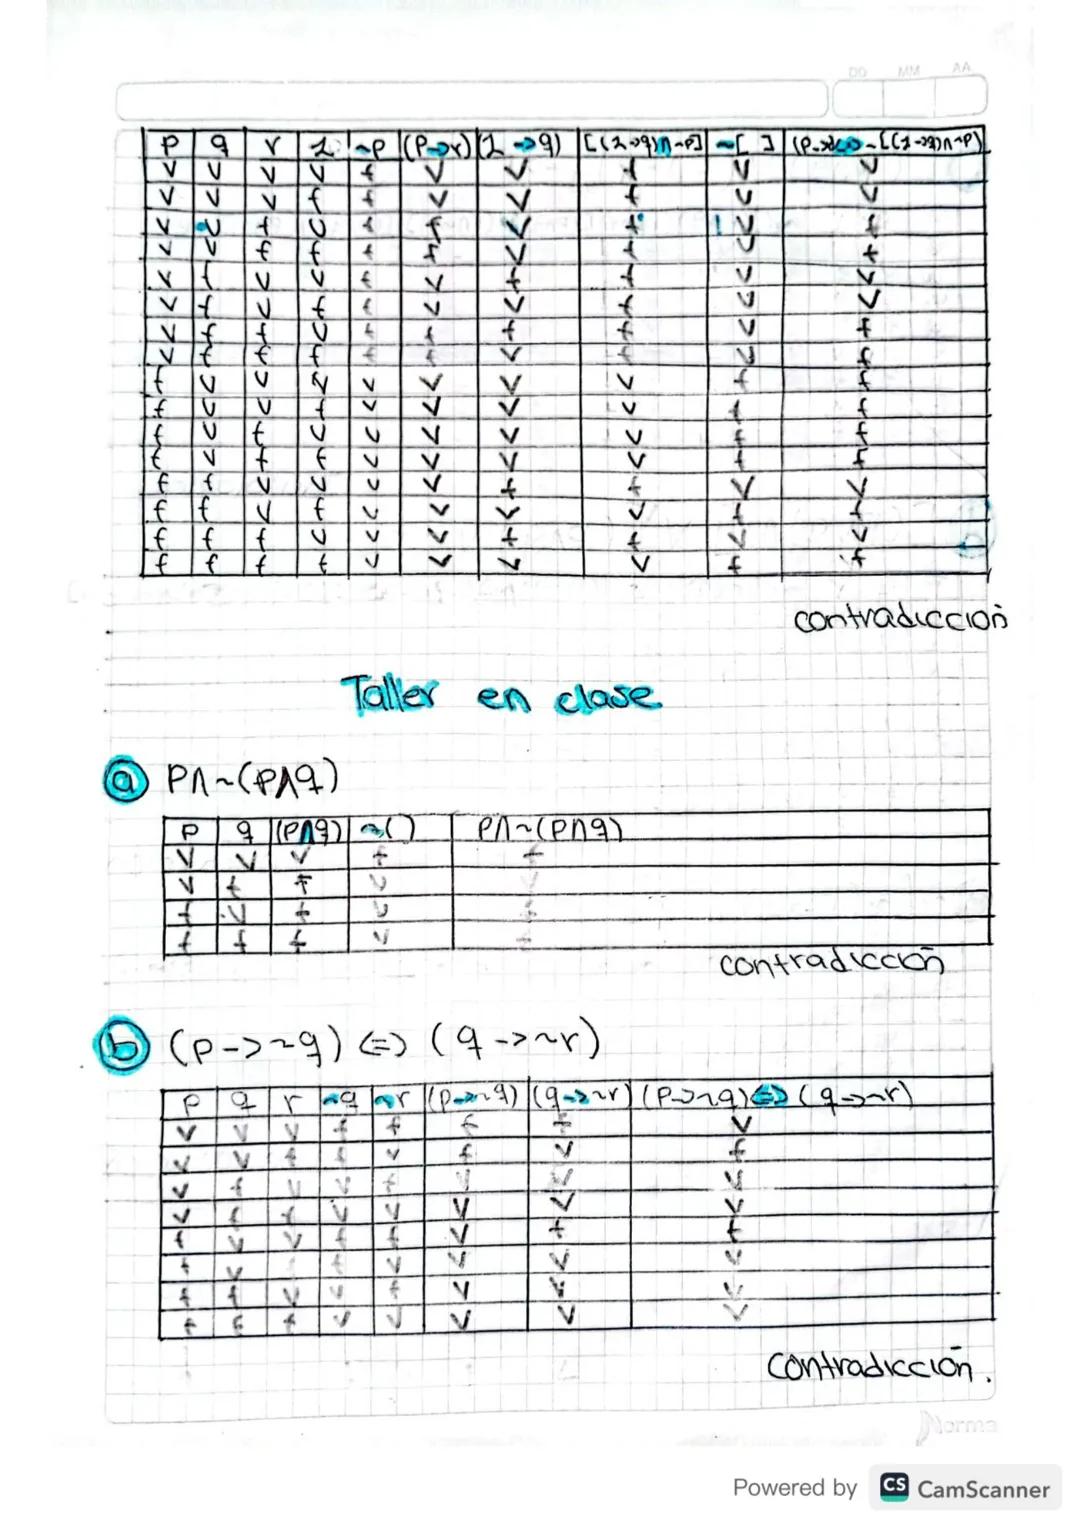 DD MM AA
p q r 1 ~p (p->r) (1->q) [(1->q)∧~p] ~[ ]
v v v v f v v f v v
v v v f f v v f v v
v v f v f f v f v f
v v f f f f v f v f
v f v v f v f f v v
v f v f f v v f v v
v f f v f f f f v f
v f f f f f v f v f
f v v v v v v v f f
f v v f v v v v f f
f v f v v v v v f f
f v f f v v v v f f
f f v v v v f f v v
f f v f v v v v f f
f f f v v v f f v v
f f f f v v v v f f
contradicción
Taller en clase
a p∧~(p∧q)
p q (p∧q) ~( ) p∧~(p∧q)
v v v f f
v f f v v
f v f v f
f f f v f
contradicción
b (p->~q) <=> (q->~r)
p q r ~q ~r (p->~q) (q->~r) (p->~q)<=>(q->~r)
v v v f f f f v
v v f f v f v f
v f v v f v v v
v f f v v v v v
f v v f f v f f
f v f f v v v v
f f v v f v v v
f f f v v v v v
contradicción.
Norma
Powered by CS CamScanner